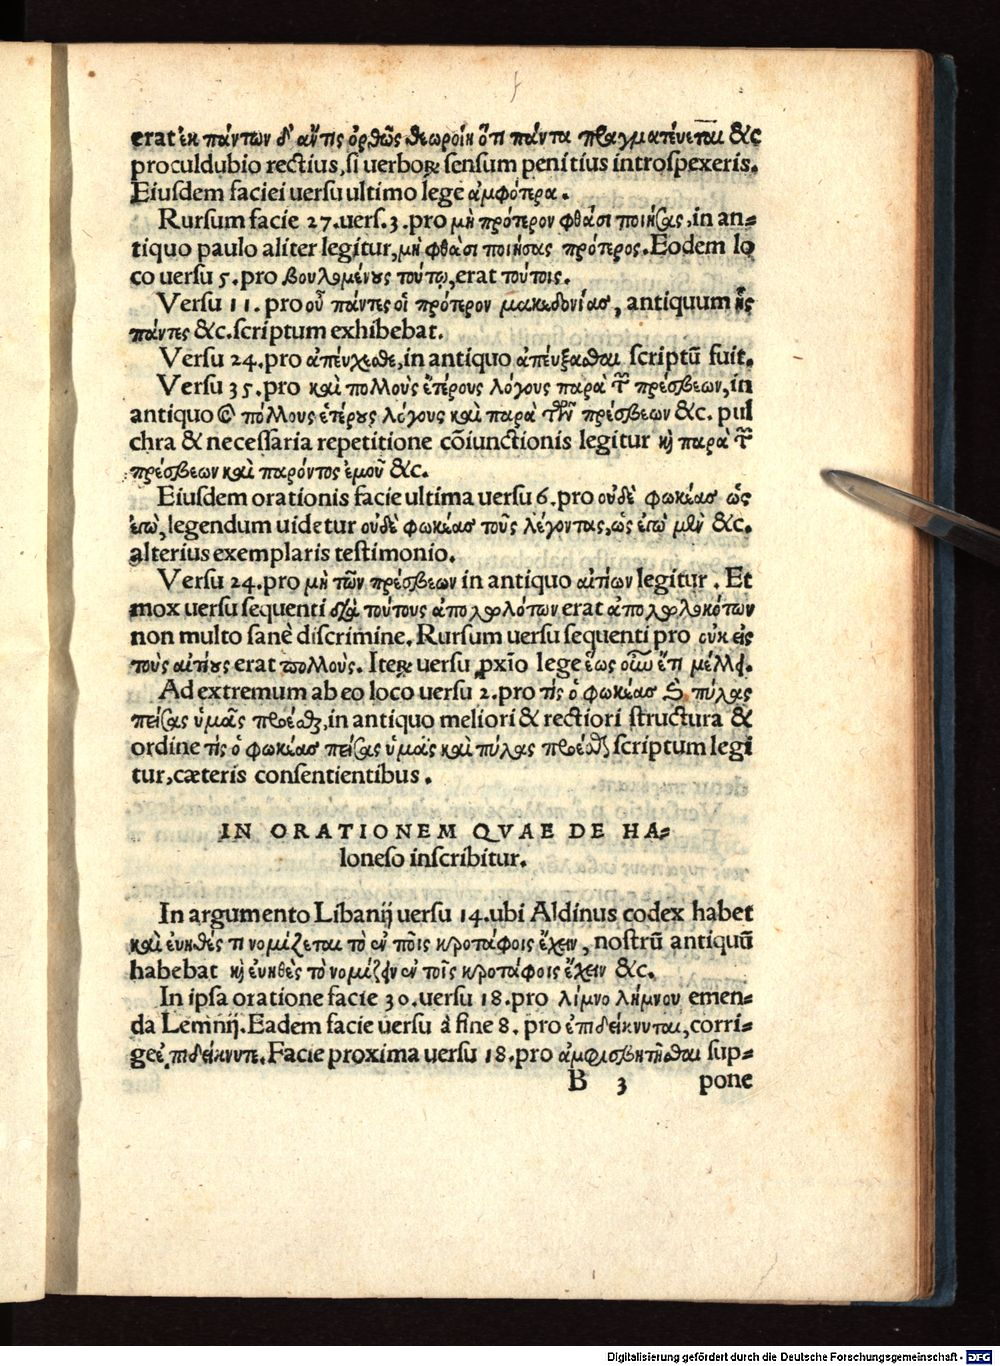 erat ἐκ πάντων δ' ἄν τις ὀρθῶς θεωροίη ὅτι πάντα πραγματεύεται &c
proculdubio rectius, si uerborꝝ sensum penitius introspexeris.
Eiusdem faciei uersu ultimo lege ἀμφότερα.
Rursum facie 27. uers. 3. pro μὴ πρότερον φθάσι ποιήσας, in an=
tiquo paulo aliter legitur, μὴ φθάσι ποιήσας πρότερος. Eodem lo
co uersu 5. pro βουλομένους τούτῳ, erat τούτοις.
Versu 11. pro οὗ πάντες οἱ πρότερον μακεδονίας, antiquum ἧς
πάντες &c. scriptum exhibebat.
Versu 24. pro ἀπέυχεσθε, in antiquo ἀπέυξασθαι scriptū fuit.
Versu 35. pro καὶ πολλοὺς ἑτέρους λόγους παρὰ τῶν πρέσβεων, in
antiquo πόλλους ἑτέρους λόγους καὶ παρὰ τῶν πρέσβεων &c. pul
chra & necessaria repetitione cōiunctionis legitur καὶ παρὰ τῶν
πρέσβεων καὶ παρόντος ἐμοῦ &c.
Eiusdem orationis facie ultima uersu 6. pro οὐδὲ φωκέας ὡς
ἐγὼ, legendum uidetur οὐδὲ φωκέας τοῦς λέγοντας, ὡς ἐγὼ μὲν &c.
alterius exemplaris testimonio.
Versu 24. pro μὴ τῶν πρέσβεων in antiquo αἰτίων legitur. Et
mox uersu sequenti διὰ τούτους ἀπολωλότων erat ἀπολωλεκότων
non multo sanè discrimine. Rursum uersu sequenti pro οὐκ εἰς
τοὺς αἰτίους erat πολλοὺς. Iterꝝ uersu ꝓxīo lege ἕως οὖν ἔτι μέλλει.
Ad extremum ab eo loco uersu 2. pro τίς ὁ φωκέας καὶ πύλας
πείσας ὑμᾶς προέσθαι, in antiquo meliori & rectiori structura &
ordine τίς ὁ φωκέας πείσας ὑμᾶς καὶ πύλας προέσθαι scriptum legi
tur, cæteris consentientibus.
IN ORATIONEM QVAE DE HA=
loneso inscribitur.
In argumento Libanij uersu 14. ubi Aldinus codex habet
καὶ ἐυηθές τι νομίζεται τὸ ἐν τοῖς κροτάφοις ἔχειν, nostrū antiquū
habebat καὶ ἐυηθὲς τὸ νομίζειν ἐν τοῖς κροτάφοις ἔχειν &c.
In ipsa oratione facie 30. uersu 18. pro λίμνο λήμνου emen=
da Lemnij. Eadem facie uersu à fine 8. pro ἐπιδείκνυται, corri=
ge ἐπιδείκνυτε. Facie proxima uersu 18. pro ἀμφισβητῆσθαι sup=
B 3 pone
Digitalisierung gefördert durch die Deutsche Forschungsgemeinschaft - DFG